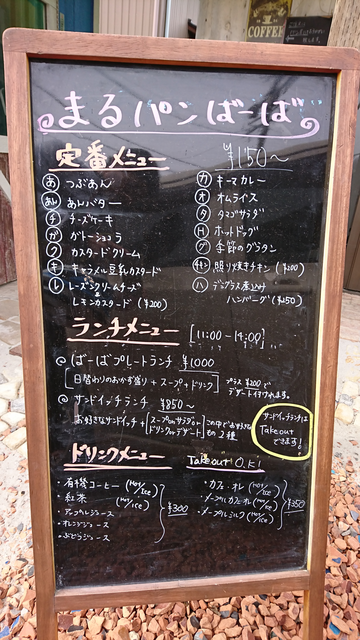 COFFEE
まるパンばーば
定番メニュー ¥150〜
あ つぶあん
あん あんバター
チ チーズケーキ
ガ ガトーショコラ
ク カスタードクリーム
キ キャラメル豆乳カスタード
レ レーズンクリームチーズ
レモンカスタード (¥200)
カ キーマカレー
オ オムライス
タ タマゴサラダ
H ホットドッグ
グ 季節のグラタン
チキン 照り焼きチキン (¥200)
ハ デミグラス煮込み
ハンバーグ (¥250)
ランチメニュー [11:00-14:00]
@ ばーばプレートランチ ¥1000
[日替わりのおかず盛り + スープ + ドリンク] プラス¥200で
デザート付けられます。
@ サンドイッチランチ ¥850〜
お好きなサンドイッチ + [スープ or サラダ or ドリンク or デザート] この中でお好きなもの2種
サンドイッチランチは
Takeout
できます!
ドリンクメニュー Takeout O.K!
・有機コーヒー (Hot/Ice)
・紅茶 (Hot/Ice)
・アップルジュース
・オレンジジュース
・ぶどうジュース
¥300
・カフェオレ (Hot/Ice)
・メープルカフェオレ (Hot/Ice)
・メープルミルク (Hot/Ice)
¥350